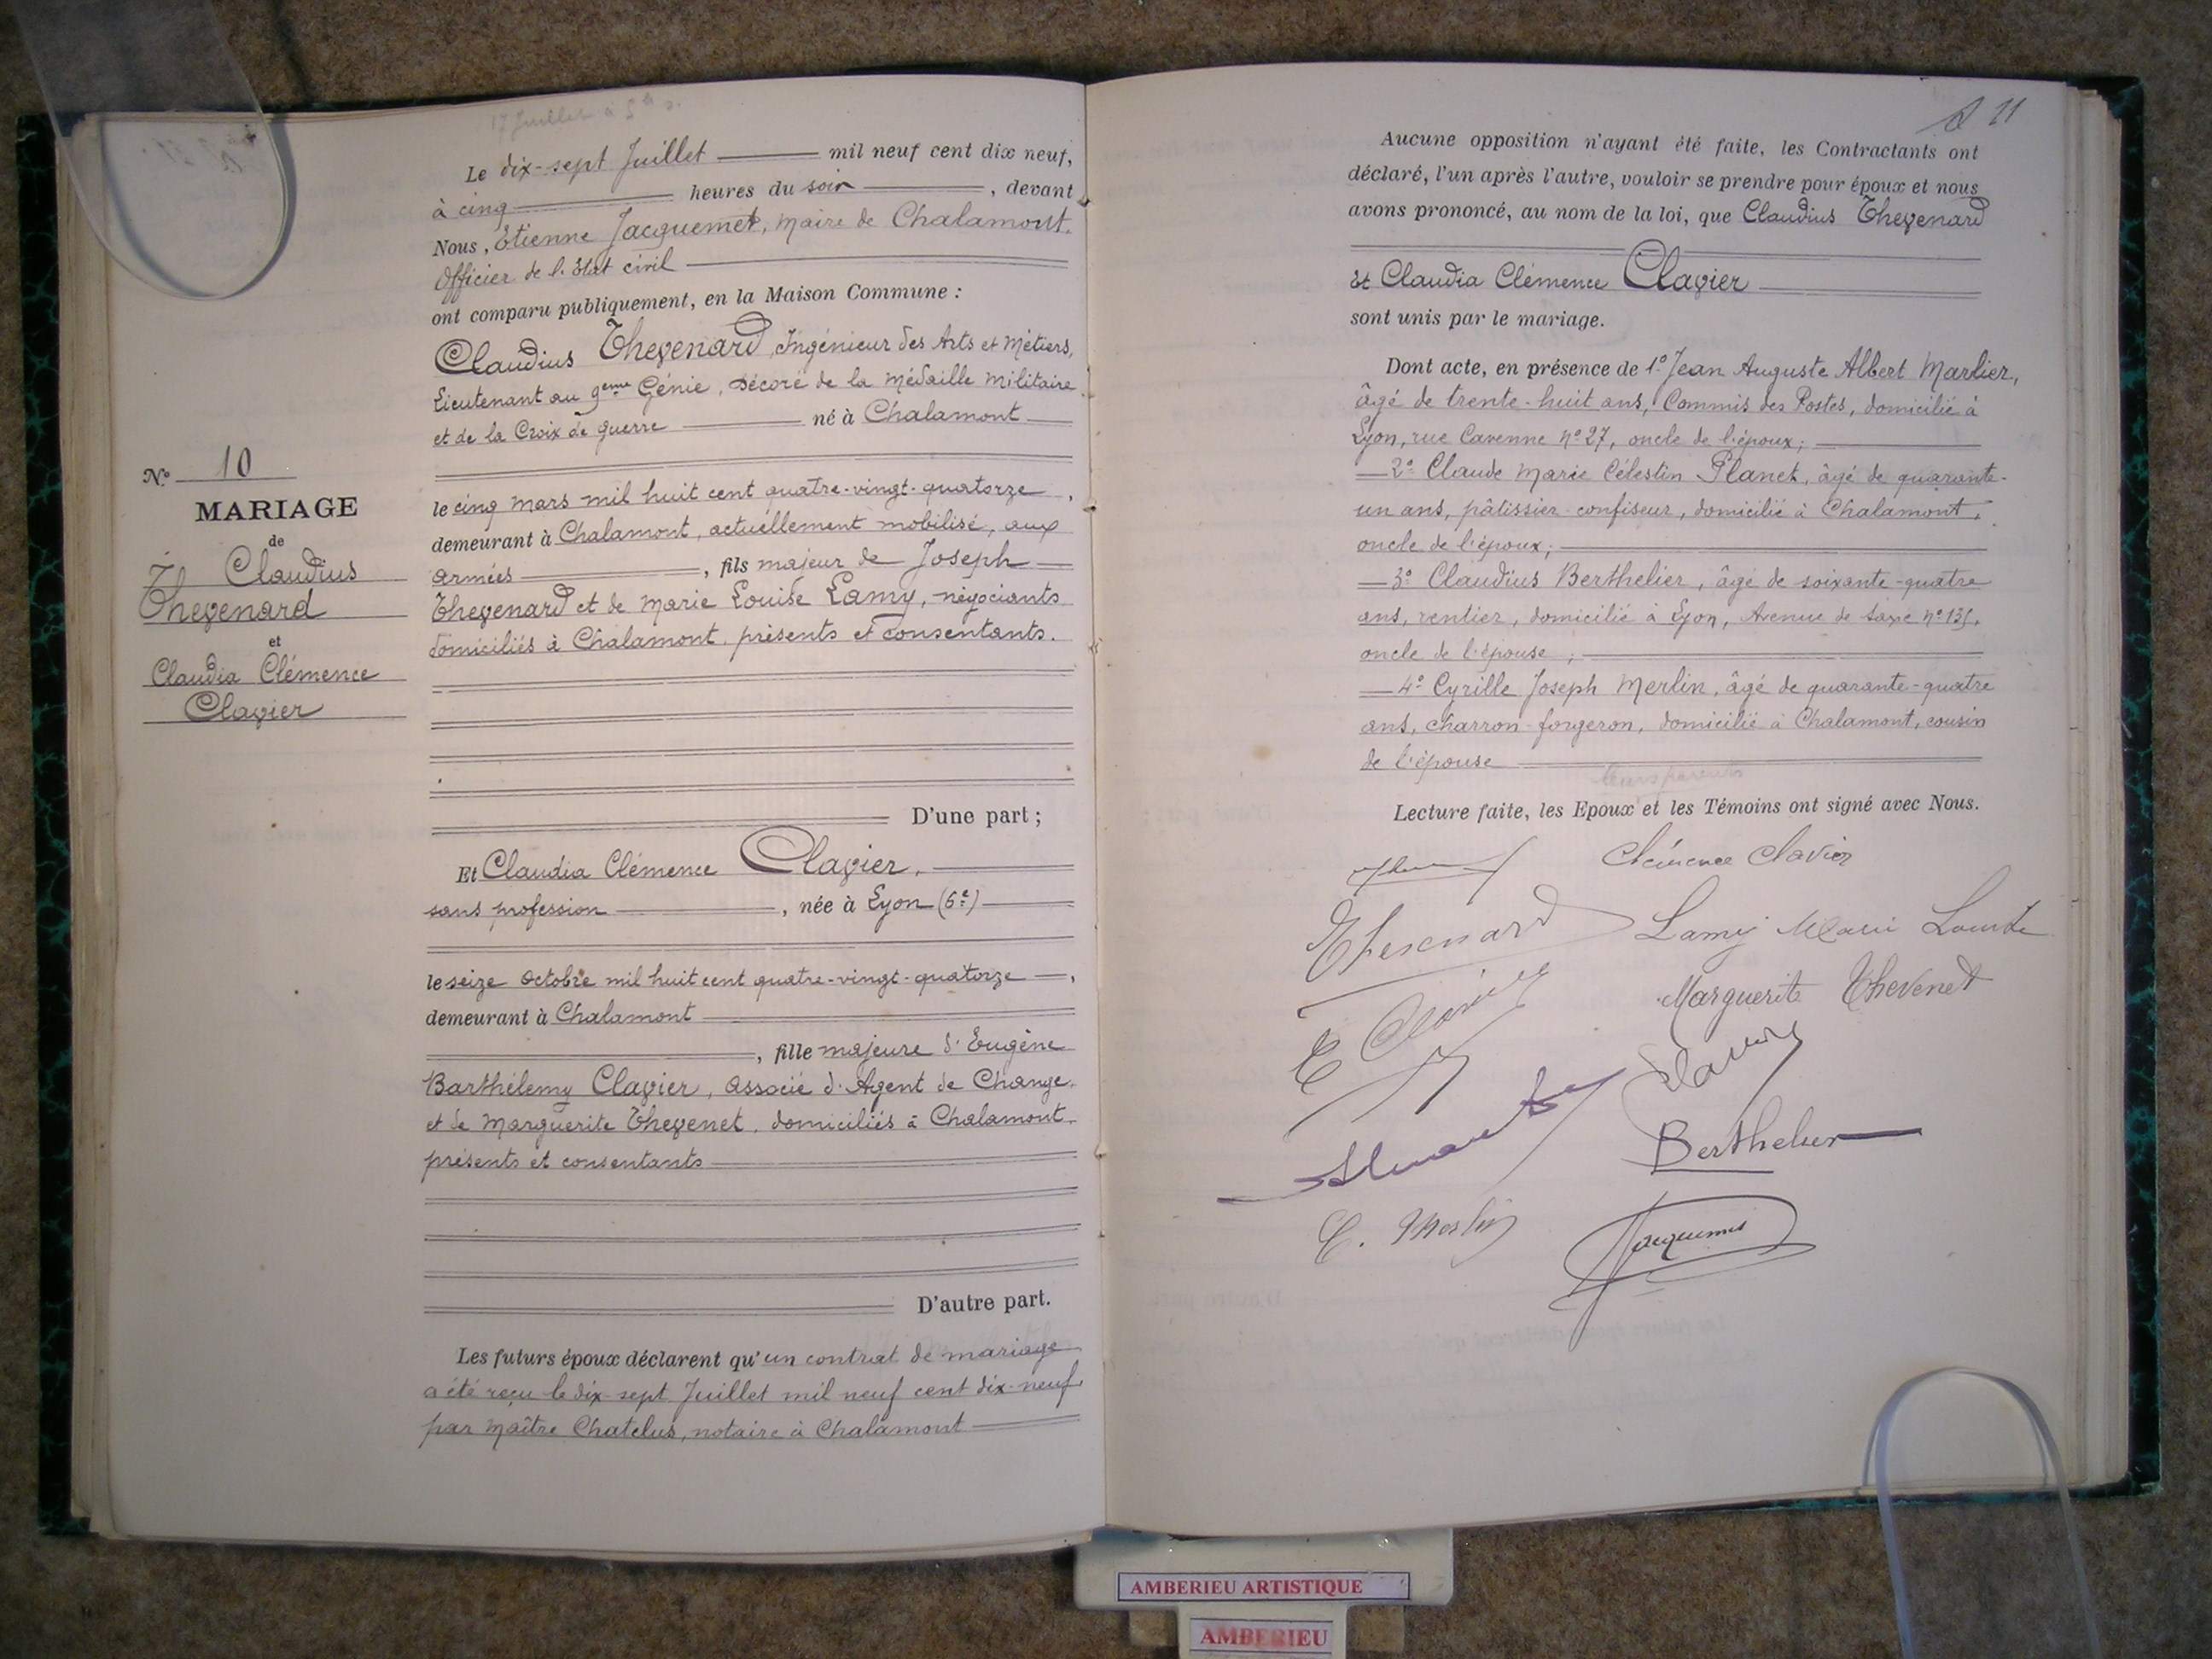 17 Juillet à 5h s.
Le dix-sept Juillet mil neuf cent dix neuf,
à cinq heures du soir, devant
Nous, Etienne Jacquemet, Maire de Chalamont,
Officier de l'Etat civil
ont comparu publiquement, en la Maison Commune :
Claudius Thevenard, Ingénieur des Arts et Métiers,
Lieutenant au 9eme Génie, Décoré de la Médaille Militaire
et de la Croix de guerre né à Chalamont
le cinq mars mil huit cent quatre-vingt-quatorze,
demeurant à Chalamont, actuellement mobilisé, aux
armées, fils majeur de Joseph
Thevenard et de Marie Louise Lamy, négociants
domiciliés à Chalamont présents et consentants.
D'une part ;
Et Claudia Clémence Clavier,
sans profession, née à Lyon (6e)
le seize Octobre mil huit cent quatre-vingt-quatorze,
demeurant à Chalamont
, fille majeure d'Eugène
Barthélemy Clavier, associé d'Agent de Change,
et de Marguerite Thevenet, domiciliés à Chalamont
présents et consentants
D'autre part.
Les futurs époux déclarent qu'un contrat de mariage
a été reçu le dix-sept Juillet mil neuf cent dix-neuf
par Maître Chatelus, notaire à Chalamont
N.° 10
MARIAGE
de
Claudius
Thevenard
et
Claudia Clémence
Clavier
11
Aucune opposition n'ayant été faite, les Contractants ont
déclaré, l'un après l'autre, vouloir se prendre pour époux et nous
avons prononcé, au nom de la loi, que Claudius Thevenard
Et Claudia Clémence Clavier
sont unis par le mariage.
Dont acte, en présence de 1° Jean Auguste Albert Marlier,
âgé de trente-huit ans, Commis des Postes, domicilié à
Lyon, rue Cavenne n° 27, oncle de l'époux ;
2° Claude Marie Célestin Planet, âgé de quarante-
un ans, pâtissier-confiseur, domicilié à Chalamont,
oncle de l'époux ;
3° Claudius Berthelier, âgé de soixante-quatre
ans, rentier, domicilié à Lyon, Avenue de Saxe n° 135,
oncle de l'épouse ;
4° Cyrille Joseph Merlin, âgé de quarante-quatre
ans, charron-forgeron, domicilié à Chalamont, cousin
de l'épouse
leurs parents
Lecture faite, les Epoux et les Témoins ont signé avec Nous.
Clémence Clavier
Thevenard
Lamy Marie Louise
E Clavier
Marguerite Thevenet
Berthelier
C. Merlin
Jacquemet
AMBERIEU ARTISTIQUE
AMBERIEU